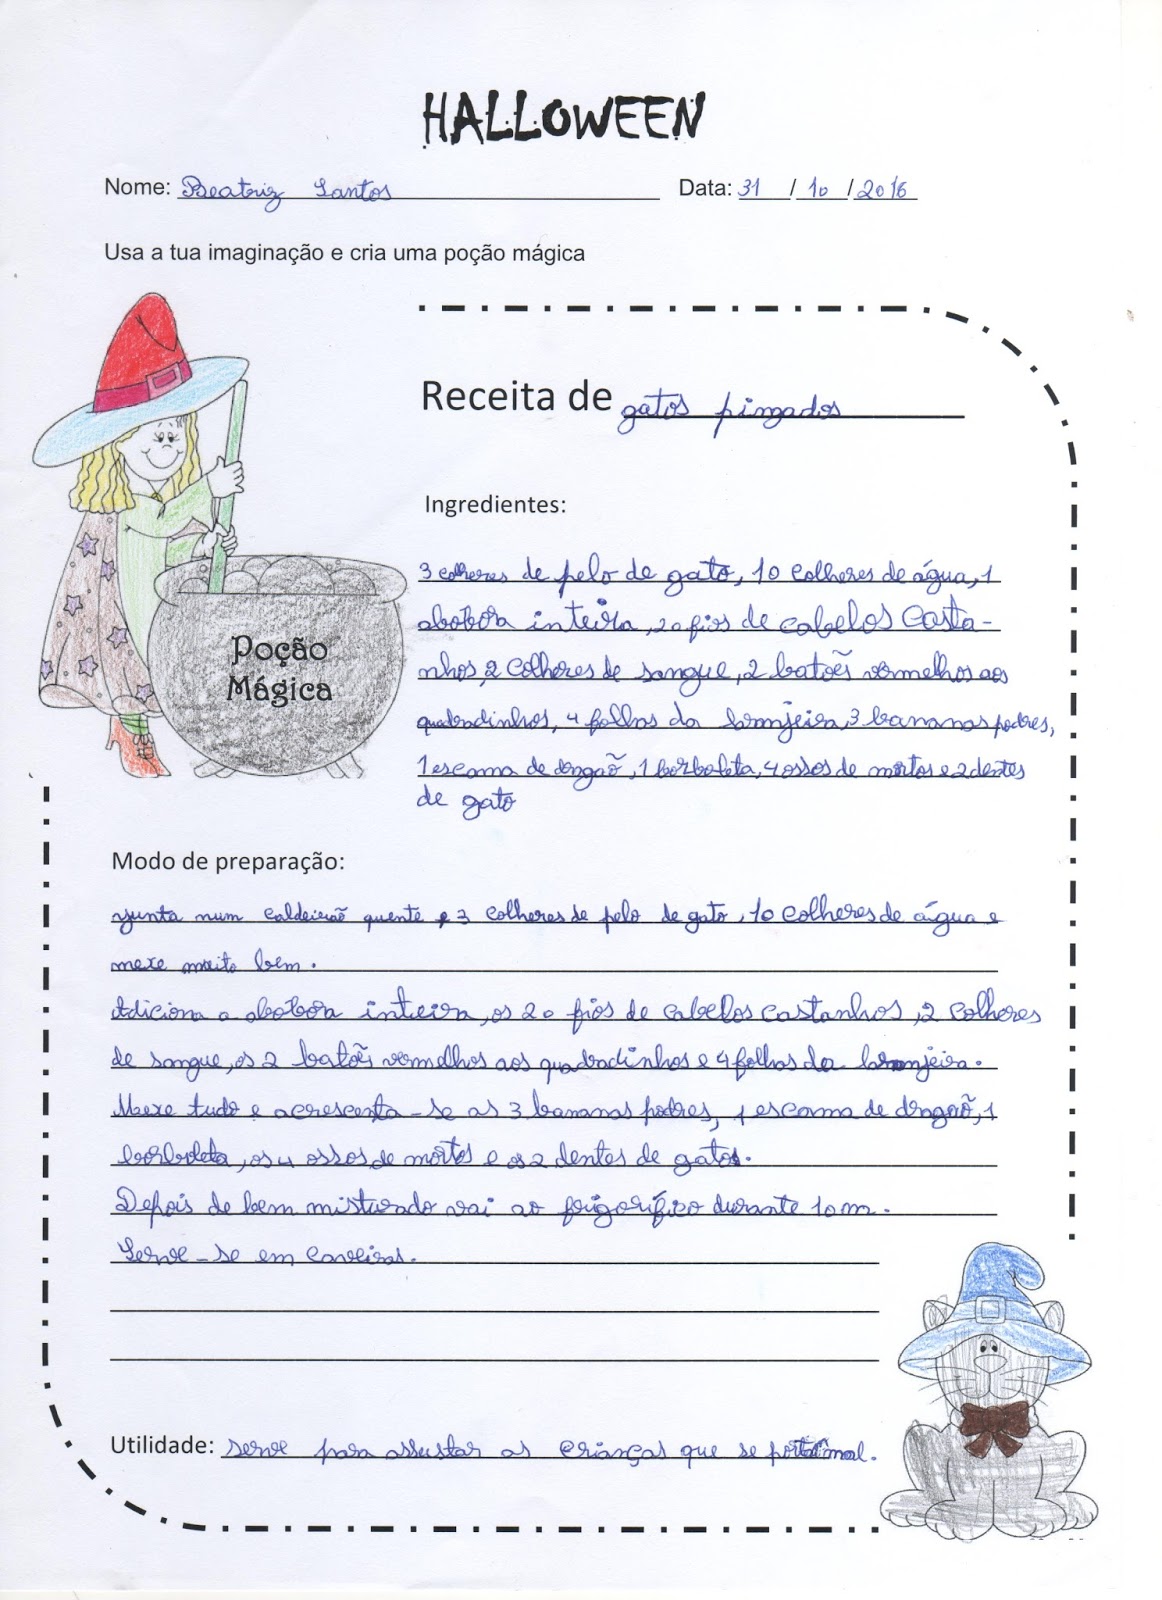 HALLOWEEN
Nome: Beatriz Santos Data: 31 / 10 / 2016
Usa a tua imaginação e cria uma poção mágica
Receita de gatos pingados
Ingredientes:
3 colheres de pelo de gato, 10 colheres de água, 1
abobora inteira, 20 fios de cabelos casta-
nhos, 2 colheres de sangue, 2 batões vermelhos aos
quadradinhos, 4 folhas da laranjeira, 3 bananas podres,
1 escama de dragão, 1 borboleta, 4 ossos de mortos e 2 dentes
de gato
Poção
Mágica
Modo de preparação:
junta num caldeirão quente, 3 colheres de pelo de gato, 10 colheres de água e
mexe muito bem.
Adiciona a abobora inteira, os 20 fios de cabelos castanhos, 2 colheres
de sangue, os 2 batões vermelhos aos quadradinhos e 4 folhas da laranjeira.
Mexe tudo e acrescenta-se as 3 bananas podres, 1 escama de dragão, 1
borboleta, os 4 ossos de mortos e os 2 dentes de gatos.
Depois de bem misturado vai ao frigorífico durante 10 m.
Serve-se em caveiras.
Utilidade: serve para assustar as crianças que se portam mal.